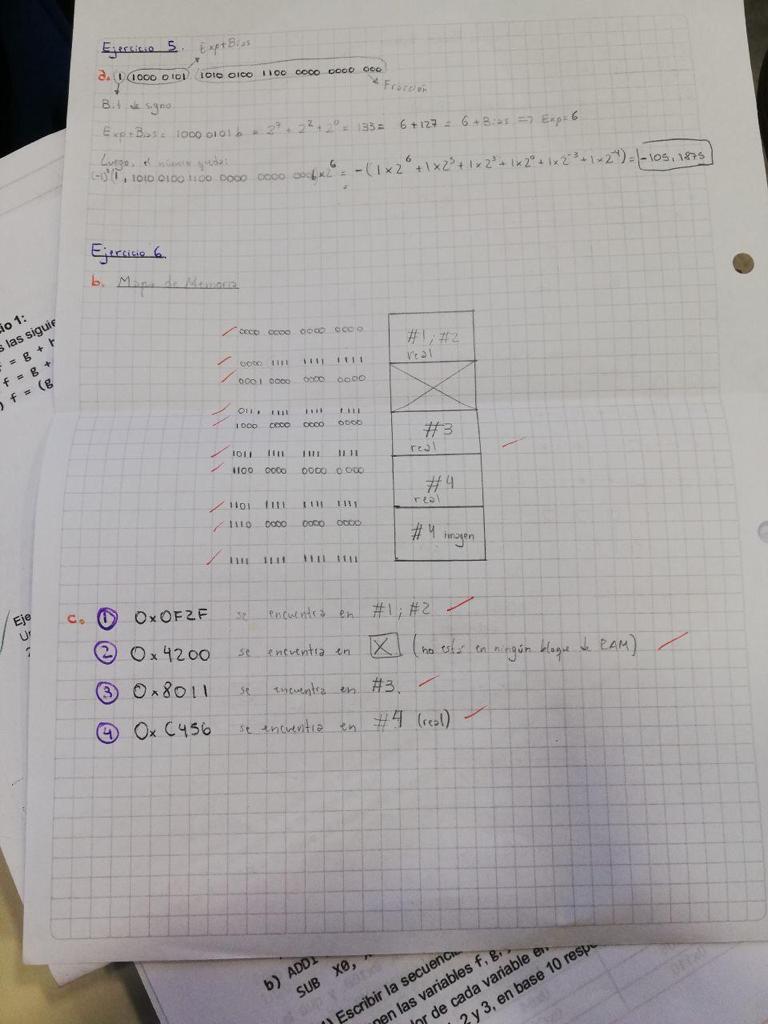 Ejercicio 5.
Exp+Bias
a. 1 1000 0101 1010 0100 1100 0000 0000 000
Fracción
Bit de signo
Exp+Bias = 1000 0101 b = 2⁷ + 2² + 2⁰ = 133 = 6+127 = 6 + Bias => Exp = 6
Luego, el número queda:
(-1)¹(1, 1010 0100 1100 0000 0000 000) x 2⁶ = -(1x2⁶ + 1x2⁵ + 1x2³ + 1x2⁰ + 1x2⁻³ + 1x2⁻⁴) = -105,1875
Ejercicio 6.
b. Mapa de Memoria
0000 0000 0000 0000
#1; #2
real
0000 1111 1111 1111
0001 0000 0000 0000
0111 1111 1111 1111
1000 0000 0000 0000
#3
real
1011 1111 1111 1111
1100 0000 0000 0000
#4
real
1101 1111 1111 1111
1110 0000 0000 0000
#4 imagen
1111 1111 1111 1111
c. 1 0x0F2F se encuentra en #1; #2
2 0x4200 se encuentra en X (no está en ningún bloque de RAM)
3 0x8011 se encuentra en #3.
4 0xC456 se encuentra en #4 (real)
io 1:
s las siguie
f = g + h
f = g +
) f = (g
Eje
b) ADDI
SUB X0,
Escribir la secuenci
nen las variables f, g,
lor de cada variable en
2 y 3, en base 10 resp